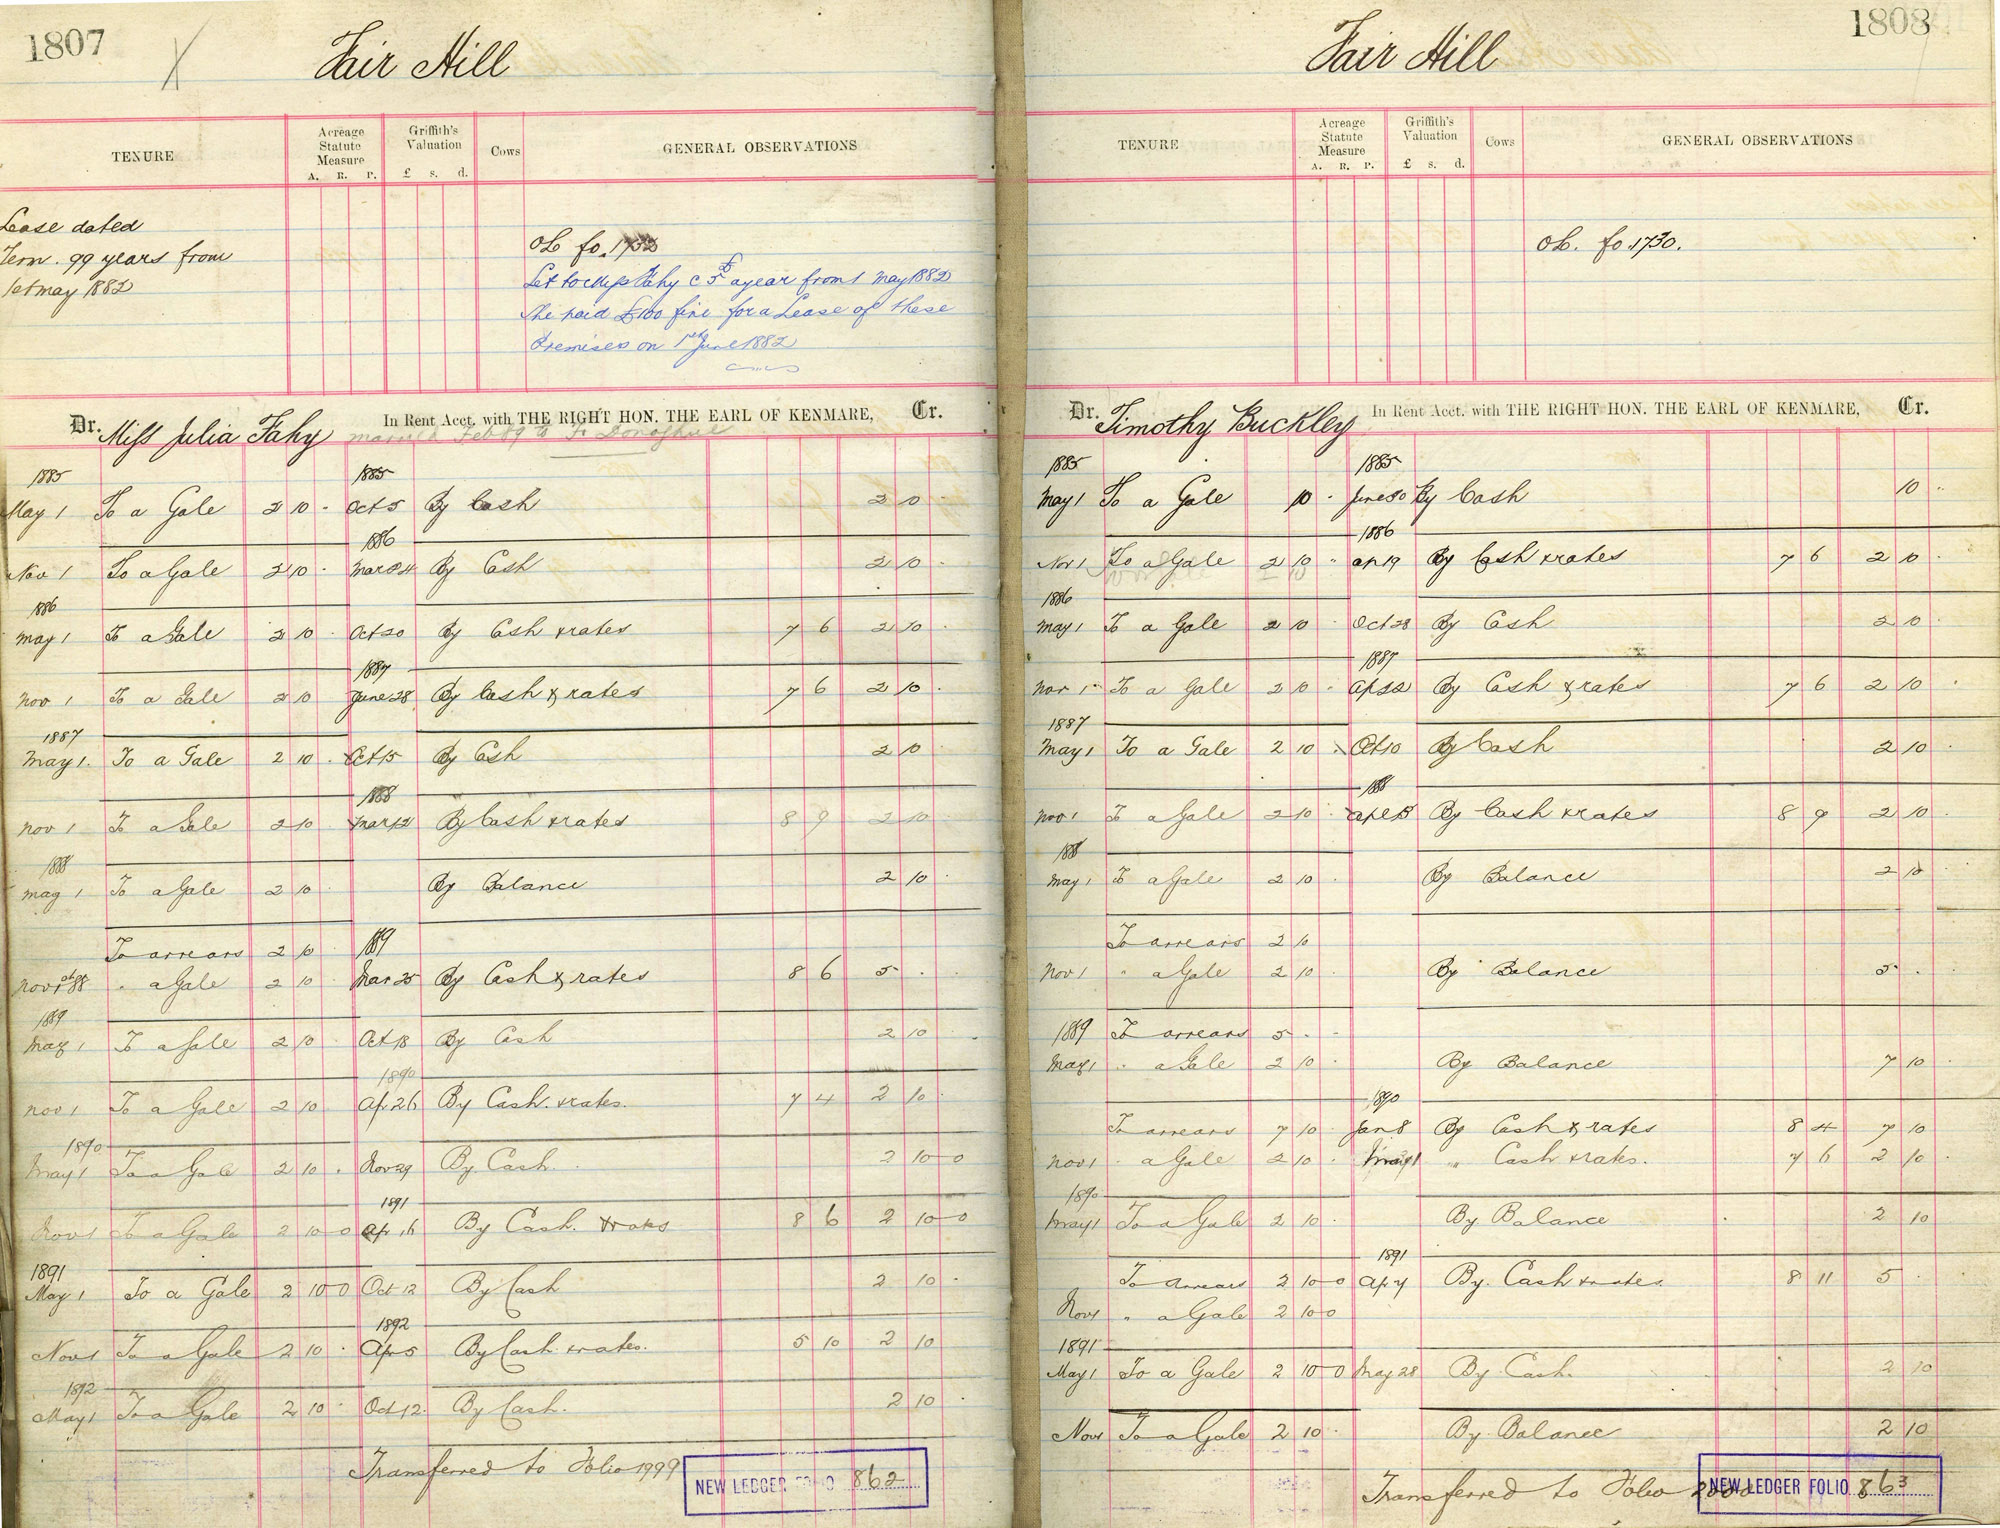 1807
Fair Hill
TENURE
Acreage Statute Measure
A. R. P.
Griffith's Valuation
£ s. d.
Cows
GENERAL OBSERVATIONS
Lease dated
Term. 99 years from
1st may 1882
OL fo. 1732
Let to Miss Fahy @ £5 a year from 1 May 1882
She paid £100 fine for a Lease of these
Premises on 1st June 1882
Dr. Miss Julia Fahy In Rent Acct. with THE RIGHT HON. THE EARL OF KENMARE, Cr.
married Feb 89 to Donoghue
1885 1885
May 1 To a Gale 2 10 - Oct 5 By Cash 2 10 -
1886
Nov 1 To a Gale 2 10 - Mar 24 By Cash 2 10 -
1886
May 1 To a Gale 2 10 Oct 20 By Cash & rates 7 6 2 10 -
1887
Nov 1 To a Gale 2 10 June 28 By Cash & rates 7 6 2 10 -
1887
May 1. To a Gale 2 10 - Oct 15 By Cash 2 10
1888
Nov 1 To a Gale 2 10 Mar 12 By Cash & rates 8 9 2 10
1888
May 1 To a Gale 2 10 By Balance 2 10 -
To arrears 2 10 1889
Nov 1st 88 " a Gale 2 10 Mar 25 By Cash & rates 8 6 5 - -
1889
May 1 To a Gale 2 10 Oct 18 By Cash 2 10
1890
Nov 1 To a Gale 2 10 Ap 26 By Cash & rates. 7 4 2 10 -
1890
May 1 To a Gale 2 10 - Nov 29 By Cash 2 10 0
1891
Nov 1 To a Gale 2 10 0 Ap 16 By Cash & rates 8 6 2 10 0
1891
May 1 To a Gale 2 10 0 Oct 12 By Cash 2 10 -
1892
Nov 1 To a Gale 2 10 - Apr 5 By Cash & rates. 5 10 2 10
1892
May 1 To a Gale 2 10 - Oct 12 By Cash. 2 10 -
Transferred to Folio 1999
NEW LEDGER FOLIO 862
1808
Fair Hill
TENURE
Acreage Statute Measure
A. R. P.
Griffith's Valuation
£ s. d.
Cows
GENERAL OBSERVATIONS
OL. fo. 1730.
Dr. Timothy Buckley In Rent Acct. with THE RIGHT HON. THE EARL OF KENMARE, Cr.
1885 1885
May 1 To a Gale 10 - June 30 By Cash 10 -
1886
Nov 1 To a Gale 2 10 " Ap 19 By Cash & rates 7 6 2 10 -
1886
May 1 To a Gale 2 10 Oct 28 By Cash 2 10
1887
Nov 1 To a Gale 2 10 - Ap 22 By Cash & rates 7 6 2 10 -
1887
May 1 To a Gale 2 10 Oct 10 By Cash 2 10
1888
Nov 1 To a Gale 2 10 - By Cash & rates 8 9 2 10 -
1888
May 1 To a Gale 2 10 By Balance 2 10
To arrears 2 10
Nov 1 " a Gale 2 10 By Balance 5 -
1889 To arrears 5 - -
May 1 " a Gale 2 10 By Balance 7 10
1890
To arrears 7 10 Jan 8 By Cash & rates 8 4 7 10
Nov 1 " a Gale 2 10 May 1 " Cash & rates. 7 6 2 10 -
1890
May 1 To a Gale 2 10 - By Balance 2 10
1891
To Arrears 2 10 0 Ap 7 By Cash & rates 8 11 5
Nov 1 " a Gale 2 10 0
1891
May 1 To a Gale 2 10 0 May 28 By Cash. 2 10
Nov 1 To a Gale 2 10 - By Balance 2 10
Transferred to Folio 2000
NEW LEDGER FOLIO 863